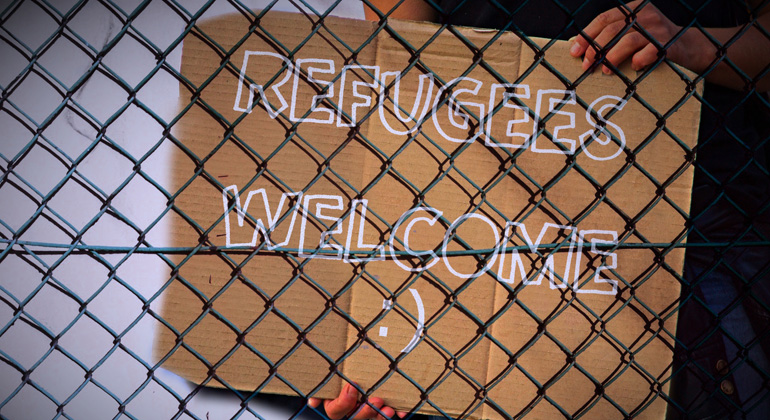 REFUGEES
WELCOME
:)